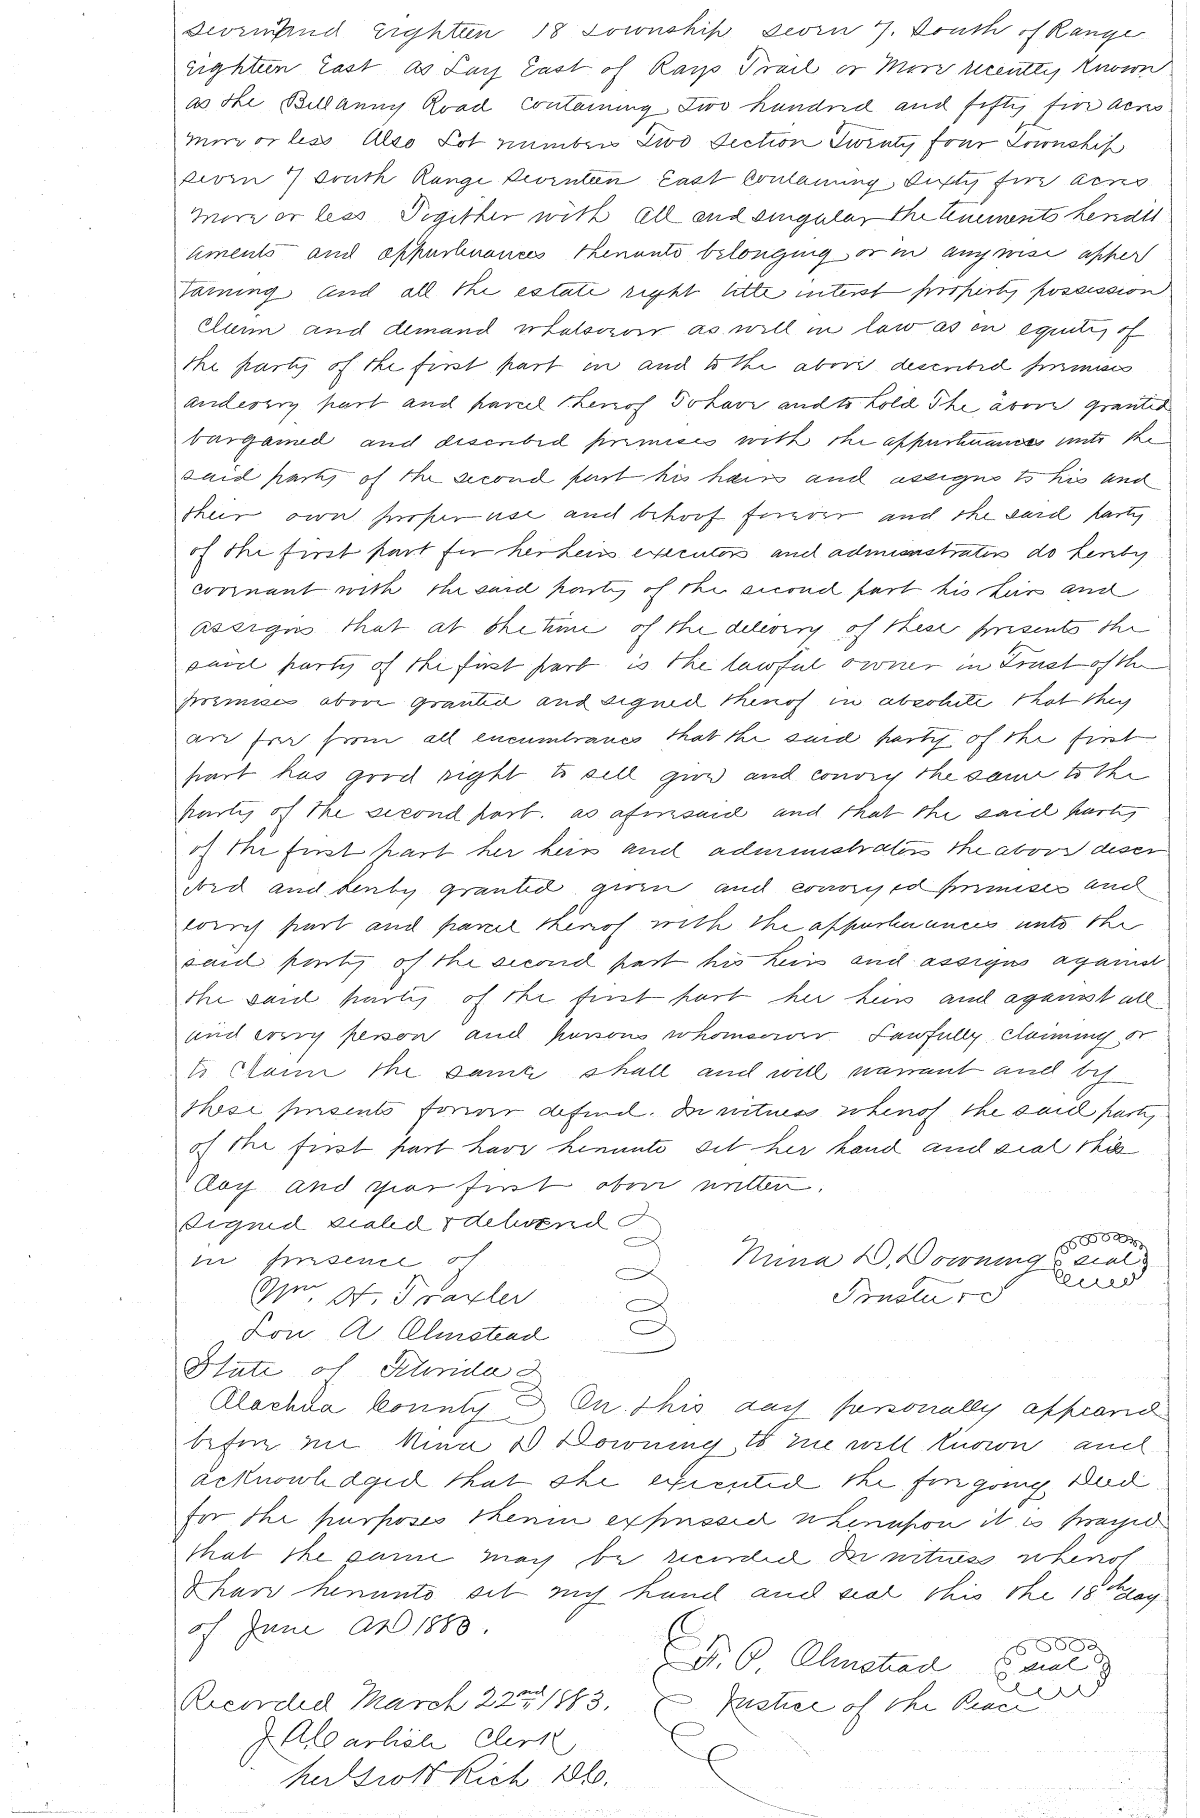 seven and Eighteen 18 Township seven 7. South of Range
Eighteen East as Lay East of Rays Trail or More recently Known
as the Bellamy Road Containing Two hundred and fifty five acres
more or less Also Lot numbers Two Section Twenty four Township
seven 7 South Range Seventeen East Containing Sixty five acres
more or less Together with all and singular the tenements heredit
aments and appurtenances thereunto belonging or in anywise apper
taining and all the estate right title interest property possession
Claim and demand whatsoever as well in law as in equity of
the party of the first part in and to the above described premises
and every part and parcel thereof To have and to hold The above granted
bargained and described premises with the appurtenances unto the
said party of the second part his heirs and assigns to his and
their own proper use and behoof forever and the said party
of the first part for her heirs executors and administrators do hereby
covenant with the said party of the second part his heirs and
assigns that at the time of the delivery of these presents the
said party of the first part is the lawful owner in Trust of the
premises above granted and signed thereof in absolute that they
are free from all encumbrances that the said party of the first
part has good right to sell give and convey the same to the
party of the second part. as aforesaid and that the said party
of the first part her heirs and administrators the above descr
ibed and hereby granted given and conveyed premises and
every part and parcel thereof with the appurtenances unto the
said party of the second part his heirs and assigns against
the said party of the first part her heirs and against all
and every person and persons whomsoever Lawfully claiming or
to claim the same shall and will warrant and by
these presents forever defend. In witness whereof the said party
of the first part have hereunto set her hand and seal this
day and year first above written.
Signed sealed & delivered
in presence of Nina D. Downing seal
Wm. H. Traxler Trustee
Lou A Olmstead
State of Florida
Alachua County On this day personally appeared
before me Nina D Downing to me well known and
acknowledged that she executed the foregoing Deed
for the purposes therein expressed whereupon it is prayed
that the same may be recorded In witness whereof
I have hereunto set my hand and seal this the 18th day
of June AD 1880.
P. Olmstead seal
Recorded March 22nd 1883. Justice of the Peace
J A Carlisle Clerk
per Scott Rich DC.